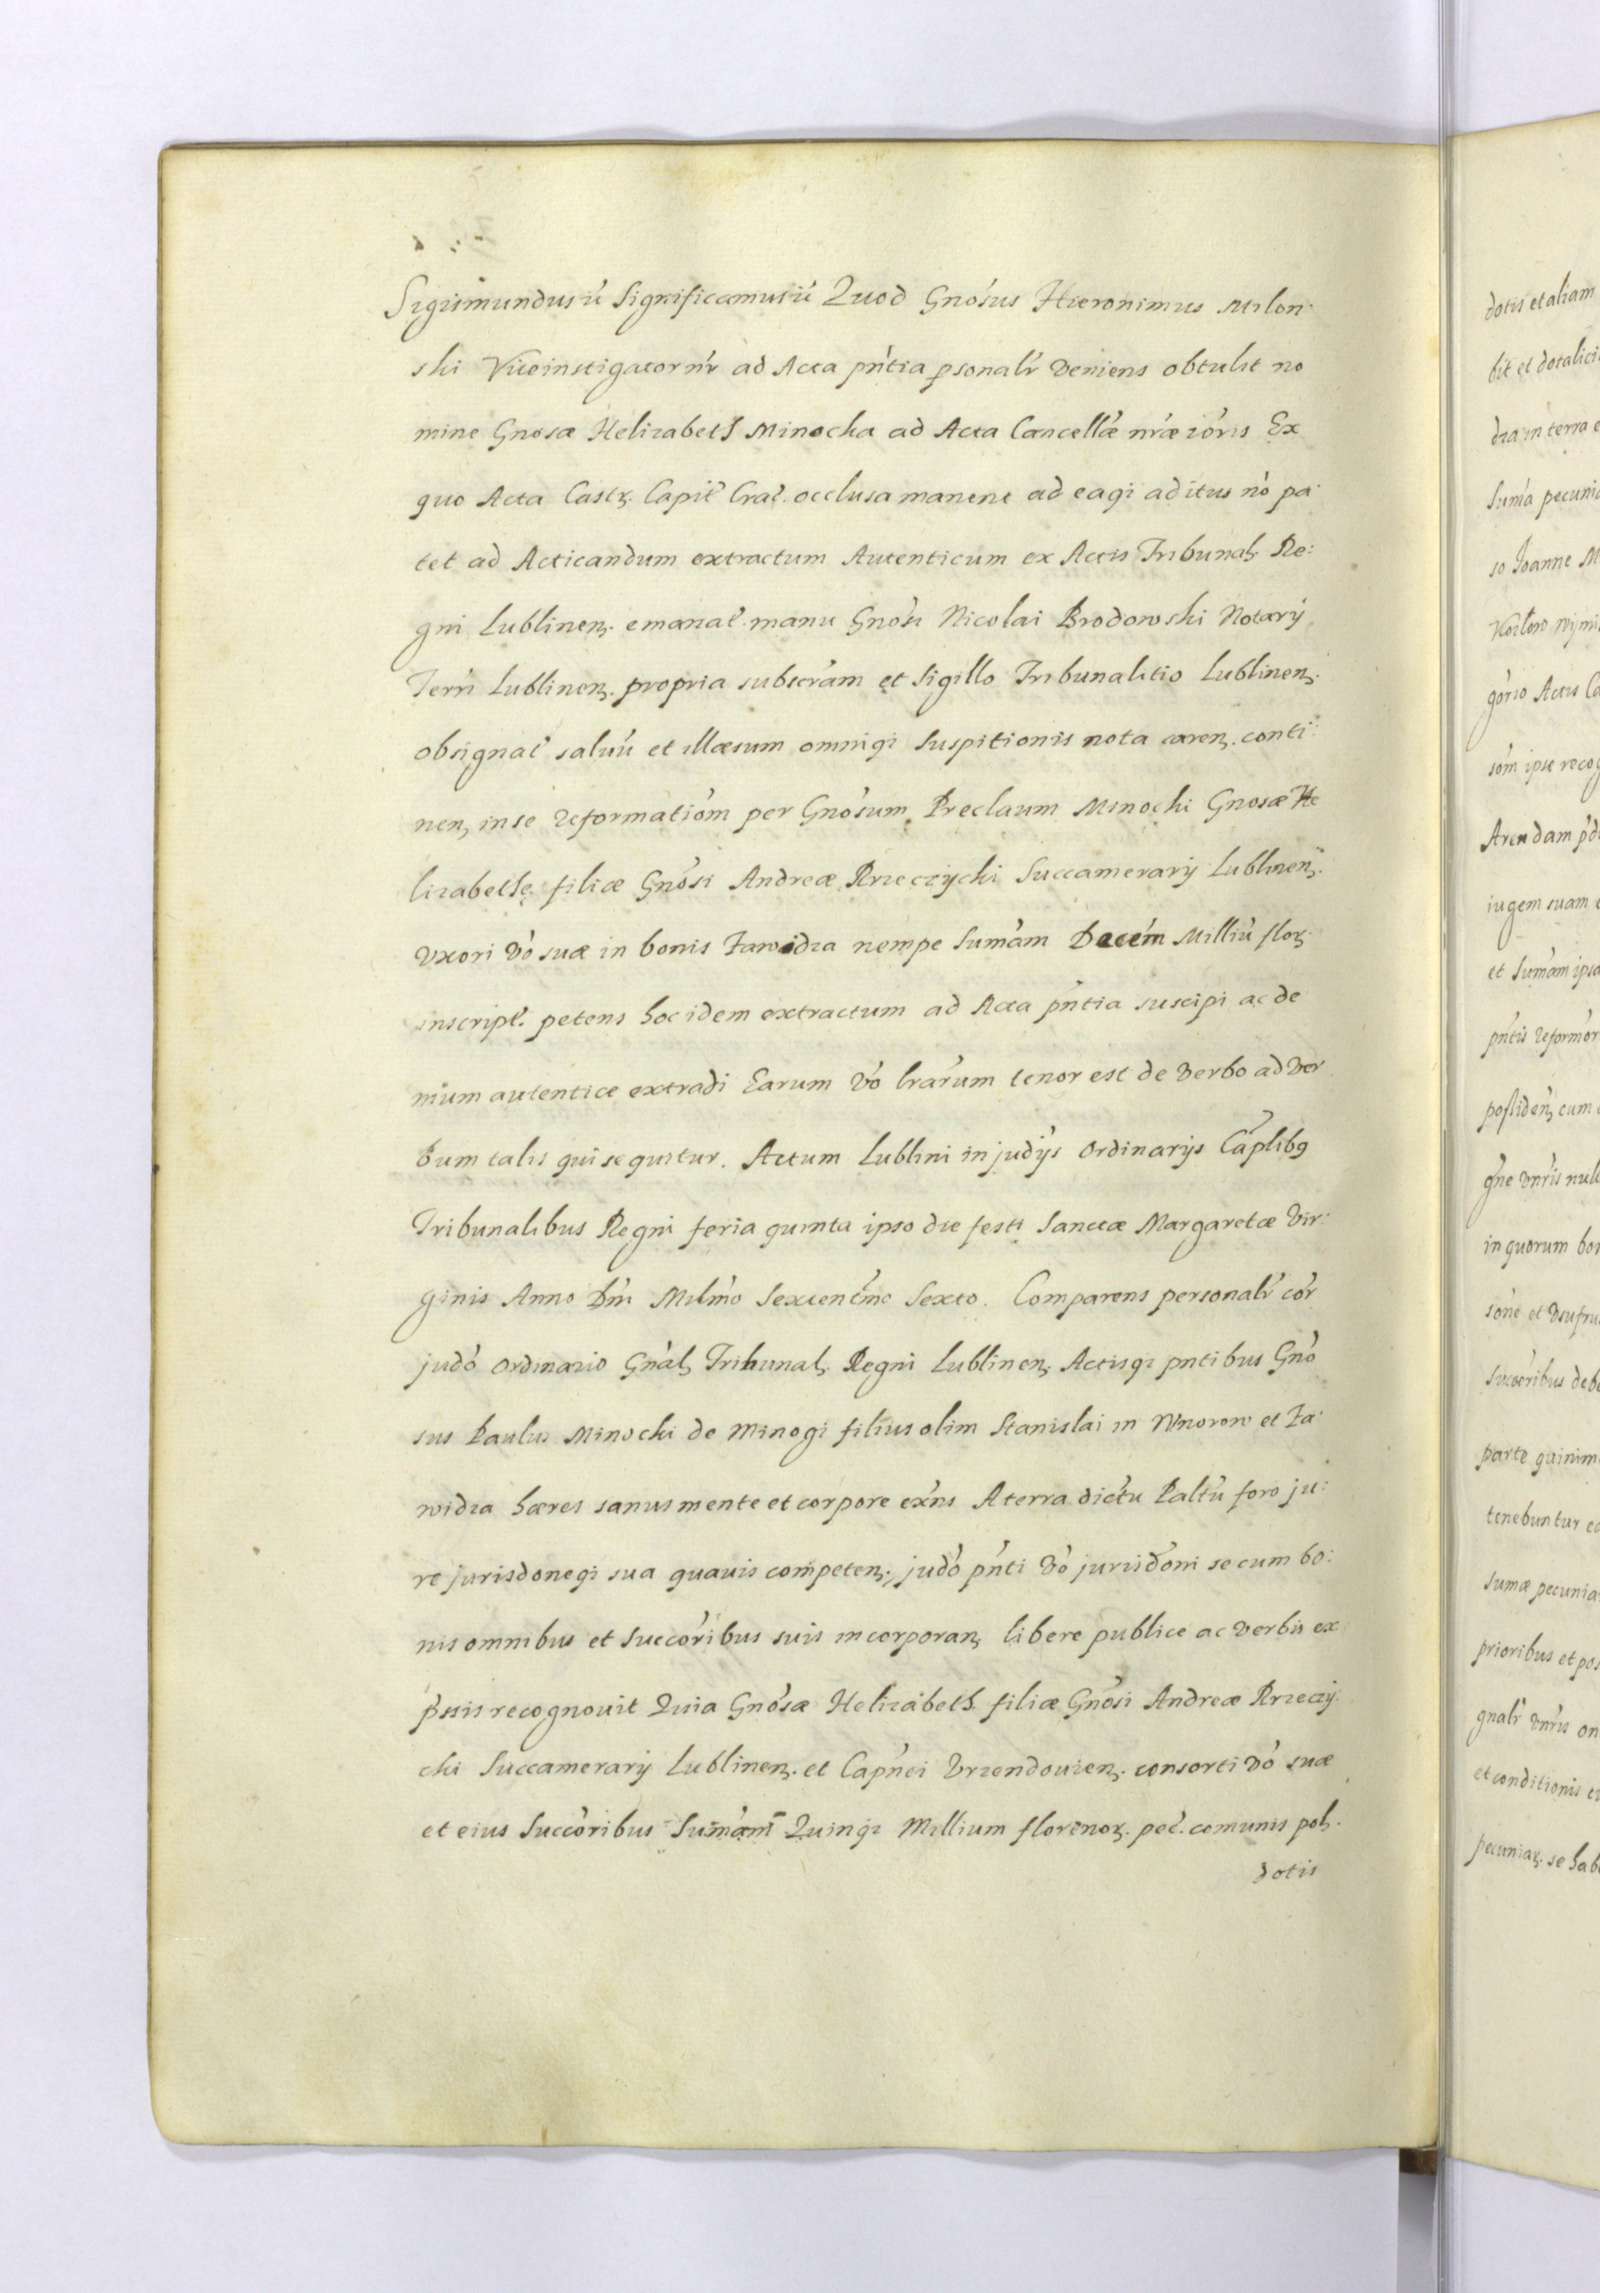 Sigismundus iũ Significamus iũ Quod Gnosus Hieronimus Milon:
ski Viceinstigator nr̃ ad Acta pñtia psonalr̃ veniens obtulit no
mine Gnosæ Helizabeth Minocka ad Acta Cancellæ nræ iõris Ex
quo Acta Castr. Capit̃ Crac̃. occlusa manent ad eaqȝ aditus nõ pa:
tet ad Acticandum extractum Autenticum ex Actis Tribunal Re:
gni Lublinen. emanat̃. manu Gnõsi Nicolai Brodowski Notarÿ
Terri Lublinen. propria subscrãm et Sigillo Tribunalitio Lublinen.
obsignat̃ saluũ et illæsum omniqȝ Suspitionis nota caren. conti:
nen, in se reformatiõm per Gnõsum Preclaum Minocki Gnosæ He
lizabethę filiæ Gnõsi Andreæ Rzeczycki Succamerarÿ Lublinen.
Vxori võ suæ in bonis Zawidza nempe Sumãm Decem Milliũ flor.
inscript̃. petens hoc idem extractum ad Acta pñtia suscipi ac de
niũm autentice extradi Earum võ lrãrum tenor est de verbo ad ver
bum talis qui sequitur. Actum Lublini in judÿs Ordinarÿs Cãplibq
Tribunalibus Regni feria quinta ipso die festi Sanctæ Margaretæ Vir:
ginis Anno Dñi Milmõ Sexcentmõ Sexto. Comparens personalr̃ cor̃
judõ Ordinario Gnãl Tribunal. Regni Lublinen. Actisqȝ pntibus Gnõ
sus Paulus Minocki de Minogi filius olim Stanislai in Wnorow et Za:
widza hæres sanus mente et corpore exñs A terra dictu Paltũ foro ju:
re jurisdoneqȝ sua quauis competen., judõ pñti võ jurisdõni se cum bo:
nis omnibus et Succõribus suis incorporan, libere publice ac verbis ex
pssis recognouit Quia Gnõsæ Helizabeth filiæ Gnõsi Andreæ Rzeczÿ
cki Succamerarÿ Lublinen. et Capñei Vrzendouien. consorti võ suæ
et eius Succõribus Sumãm Quinqȝ Millium florenor. pec̃. comunis pol.
dotis
dotis et aliam
bit et dotalici
dza in terra
Sumã pecunia
so Joanne M
gõrio Actis Ca
sõm ipse recog
Arendam pd
iugem suam
et Sumãm ipsa
pñtis reformõr
possiden, cum
gñe vñris null
in quorum bon
sõne et vsufru
Succõribus debe
parte quinim
tenebuntur ea
Sumæ pecunia
prioribus et pos
gnalr̃ vñris on
et conditionis
pecuniar. se hab